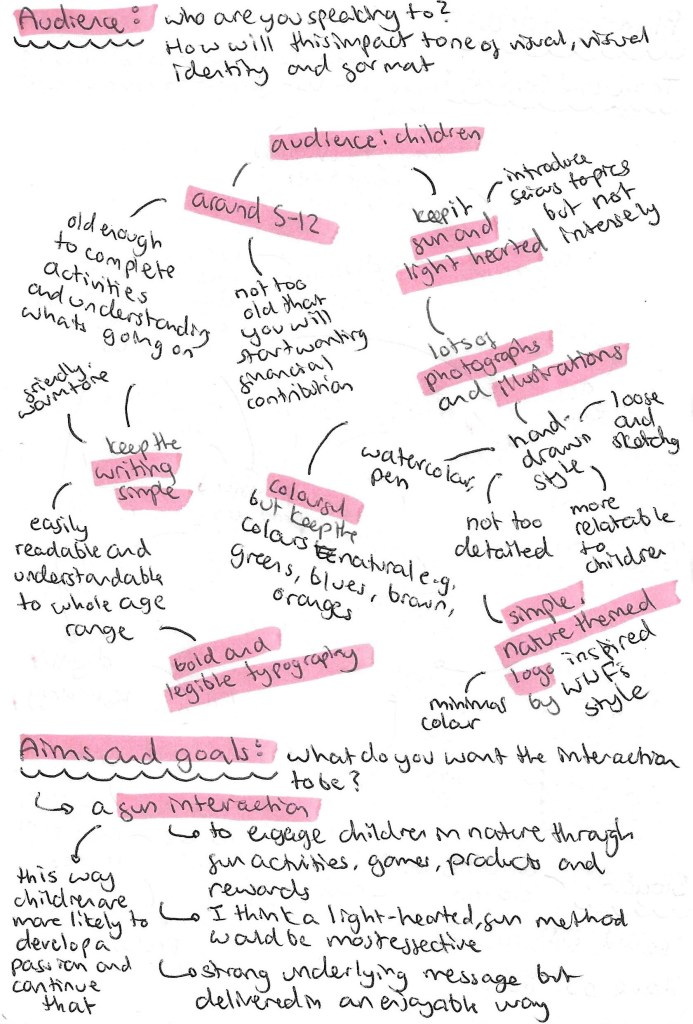 Audience: who are you speaking to?
How will this impact tone of visual, visual
identity and format
audience: children
around 5-12
old enough
to complete
activities
and understanding
whats going on
not too
old that
you will
start wanting
financial
contribution
keep it
fun and
light hearted
introduce
serious topics
but not
intensely
lots of
photographs
and illustrations
hand-
drawn
style
loose
and
sketchy
watercolour,
pen
not too
detailed
more
relatable
to
children
friendly,
warm tone
keep the
writing
simple
easily
readable and
understandable
to whole age
range
bold and
legible typography
colourful
but keep the
colours natural e.g.
greens, blues, brown,
oranges
simple,
nature themed
logo inspired
by WWF's
style
minimal
colour
Aims and goals: what do you want the interaction
to be?
↳ a fun interaction
this way
children are
more likely to
develop a
passion and
continue
that
↳ to engage children in nature through
fun activities, games, products and
rewards
↳ I think a light-hearted, fun method
would be most effective
↳ strong underlying message but
delivered in an enjoyable way